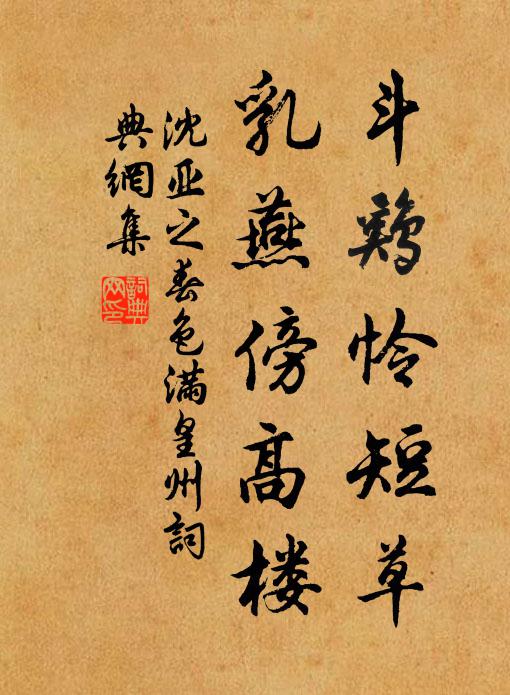 斗鷄怜短草
乳燕傍高楼
沈亚之春色满皇州詞
典網集
詞典網印